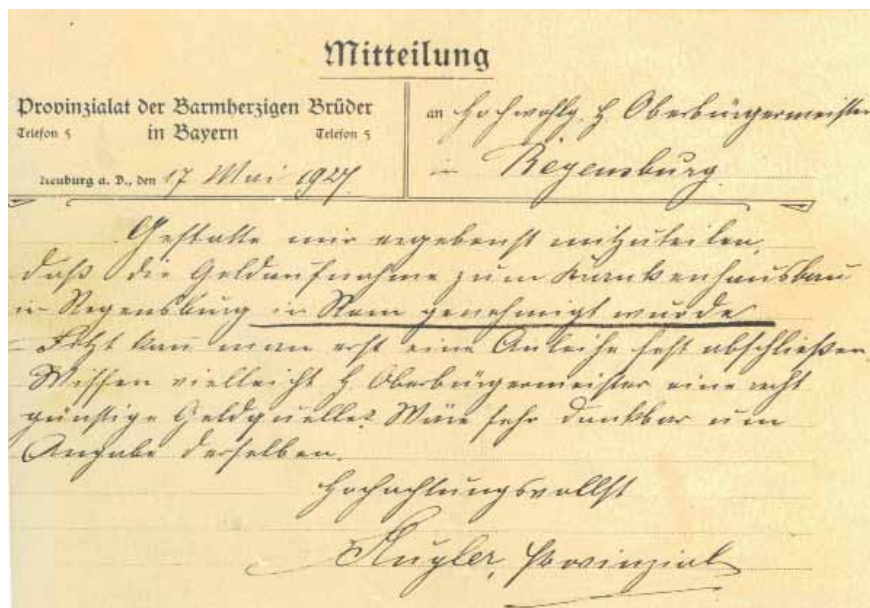 Mitteilung
Provinzialat der Barmherzigen Brüder
Telefon 5 in Bayern Telefon 5
Neuburg a. D., den 17 Mai 1927
an Hochwohlg. H Oberbürgermeister
in Regensburg.
Gestatte mir ergebenst mitzuteilen,
daß die Geldaufnahme zum Krankenhausbau
in Regensburg in Rom genehmigt wurde
Jetzt kann man erst eine Anleihe fest abschließen.
Wissen vielleicht H Oberbürgermeister eine recht
günstige Geldquelle? Wäre sehr dankbar um
Angabe derselben.
Hochachtungsvollst
Kugler, Provinzial